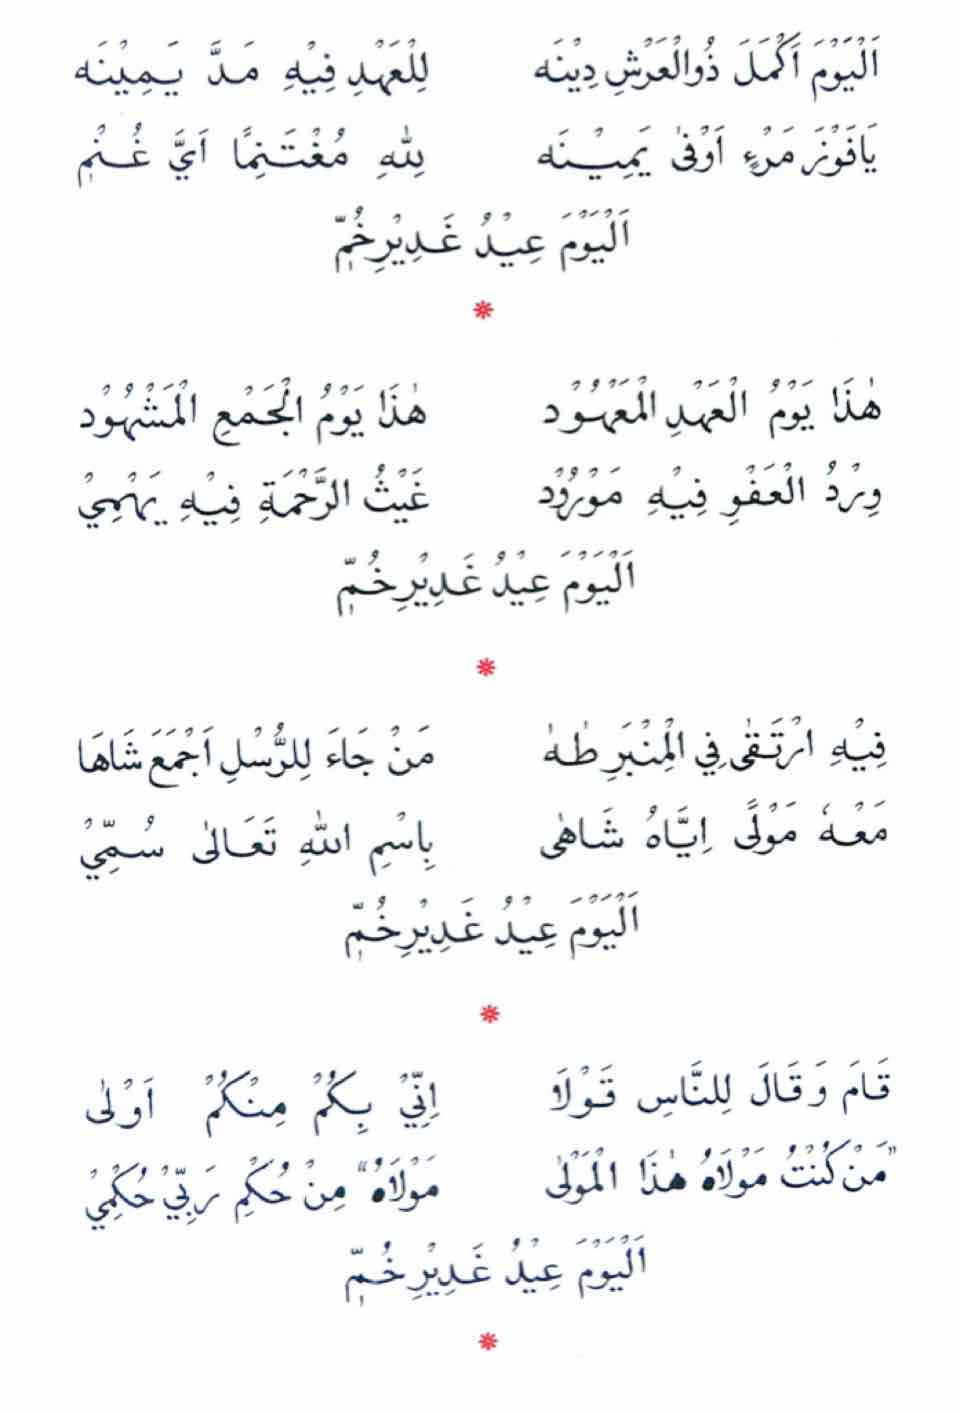 اَلْيَوْمَ اَكْمَلَ ذُوالْعَرْشِ دِيْنَه لِلْعَهْدِ فِيْهِ مَدَّ يَمِيْنَه
يَافَوْزَ مَرْءٍ اَوْفٰى يَمِيْنَه لِلّٰهِ مُغْتَنِمًا اَيَّ غُنْمٖ
اَلْيَوْمَ عِيْدُ غَدِيْرِخُمّٖ
هٰذَا يَوْمُ الْعَهْدِ الْمَعْهُوْد هٰذَا يَوْمُ الْجَمْعِ الْمَشْهُوْد
وِرْدُ الْعَفْوِ فِيْهِ مَوْرُوْد غَيْثُ الرَّحْمَةِ فِيْهِ يَهْمِيْ
اَلْيَوْمَ عِيْدُ غَدِيْرِخُمّٖ
فِيْهِ ارْتَقٰى فِي الْمِنْبَرِ طٰهٰ مَنْ جَاءَ لِلرُّسْلِ اَجْمَعَ شَاهَا
مَعْهٗ مَوْلًى اِيَّاهُ شَاهٰى بِاسْمِ اللّٰهِ تَعَالٰى سُمِّيْ
اَلْيَوْمَ عِيْدُ غَدِيْرِخُمّٖ
قَامَ وَقَالَ لِلنَّاسِ قَوْلَا اِنِّيْ بِكُمْ مِنْكُمْ اَوْلٰى
"مَنْ كُنْتُ مَوْلَاهُ هٰذَا الْمَوْلٰى مَوْلَاهُ" مِنْ حُكْمِ رَبِّيْ حُكْمِيْ
اَلْيَوْمَ عِيْدُ غَدِيْرِ خُمّٖ